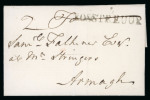 2
Saml. Faulkner Esqr.
at Mr. Stringers
Armagh